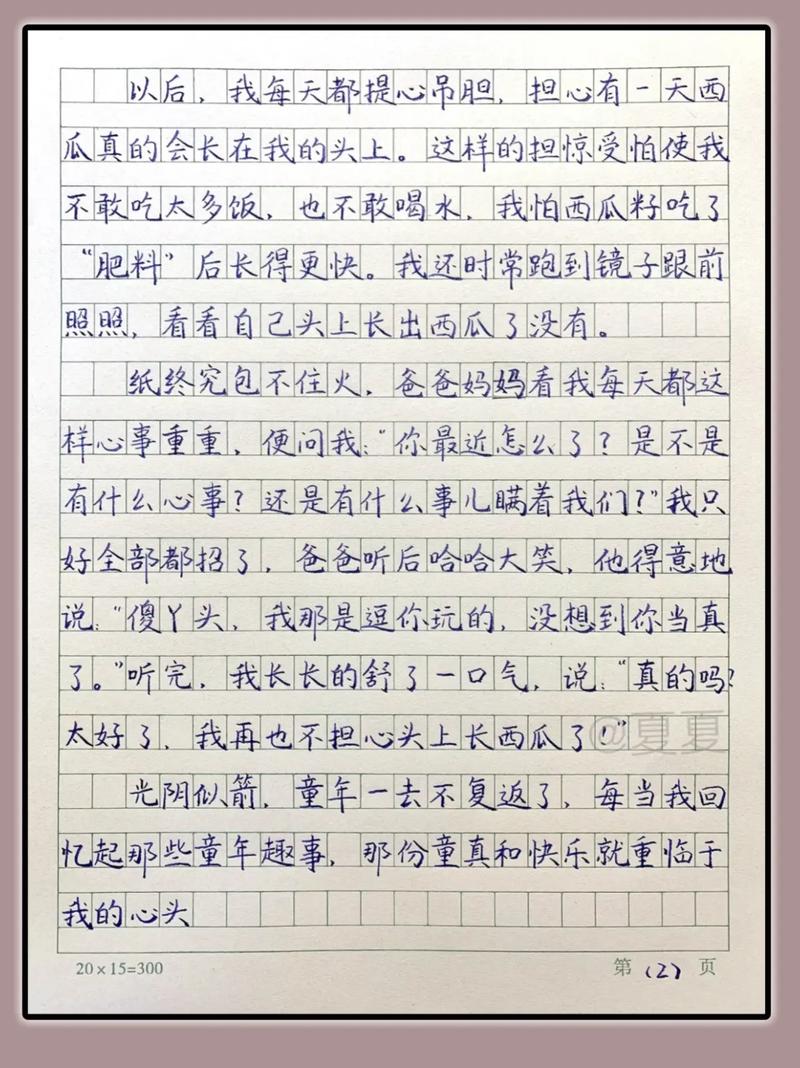 以后，我每天都提心吊胆，担心有一天西
瓜真的会长在我的头上。这样的担惊受怕使我
不敢吃太多饭，也不敢喝水，我怕西瓜籽吃了
“肥料”后长得更快。我还时常跑到镜子跟前
照照，看看自己头上长出西瓜了没有。
纸终究包不住火，爸爸妈妈看我每天都这
样心事重重，便问我：“你最近怎么了？是不是
有什么心事？还是有什么事儿瞒着我们？”我只
好全部都招了，爸爸听后哈哈大笑，他得意地
说：“傻丫头，我那是逗你玩的，没想到你当真
了。”听完，我长长的舒了一口气，说：“真的吗？
太好了，我再也不担心头上长西瓜了！”
@夏夏
光阴似箭，童年一去不复返了，每当我回
忆起那些童年趣事，那份童真和快乐就重临于
我的心头
20×15=300
第（2）页